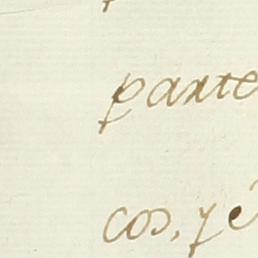 parte
cos, y é